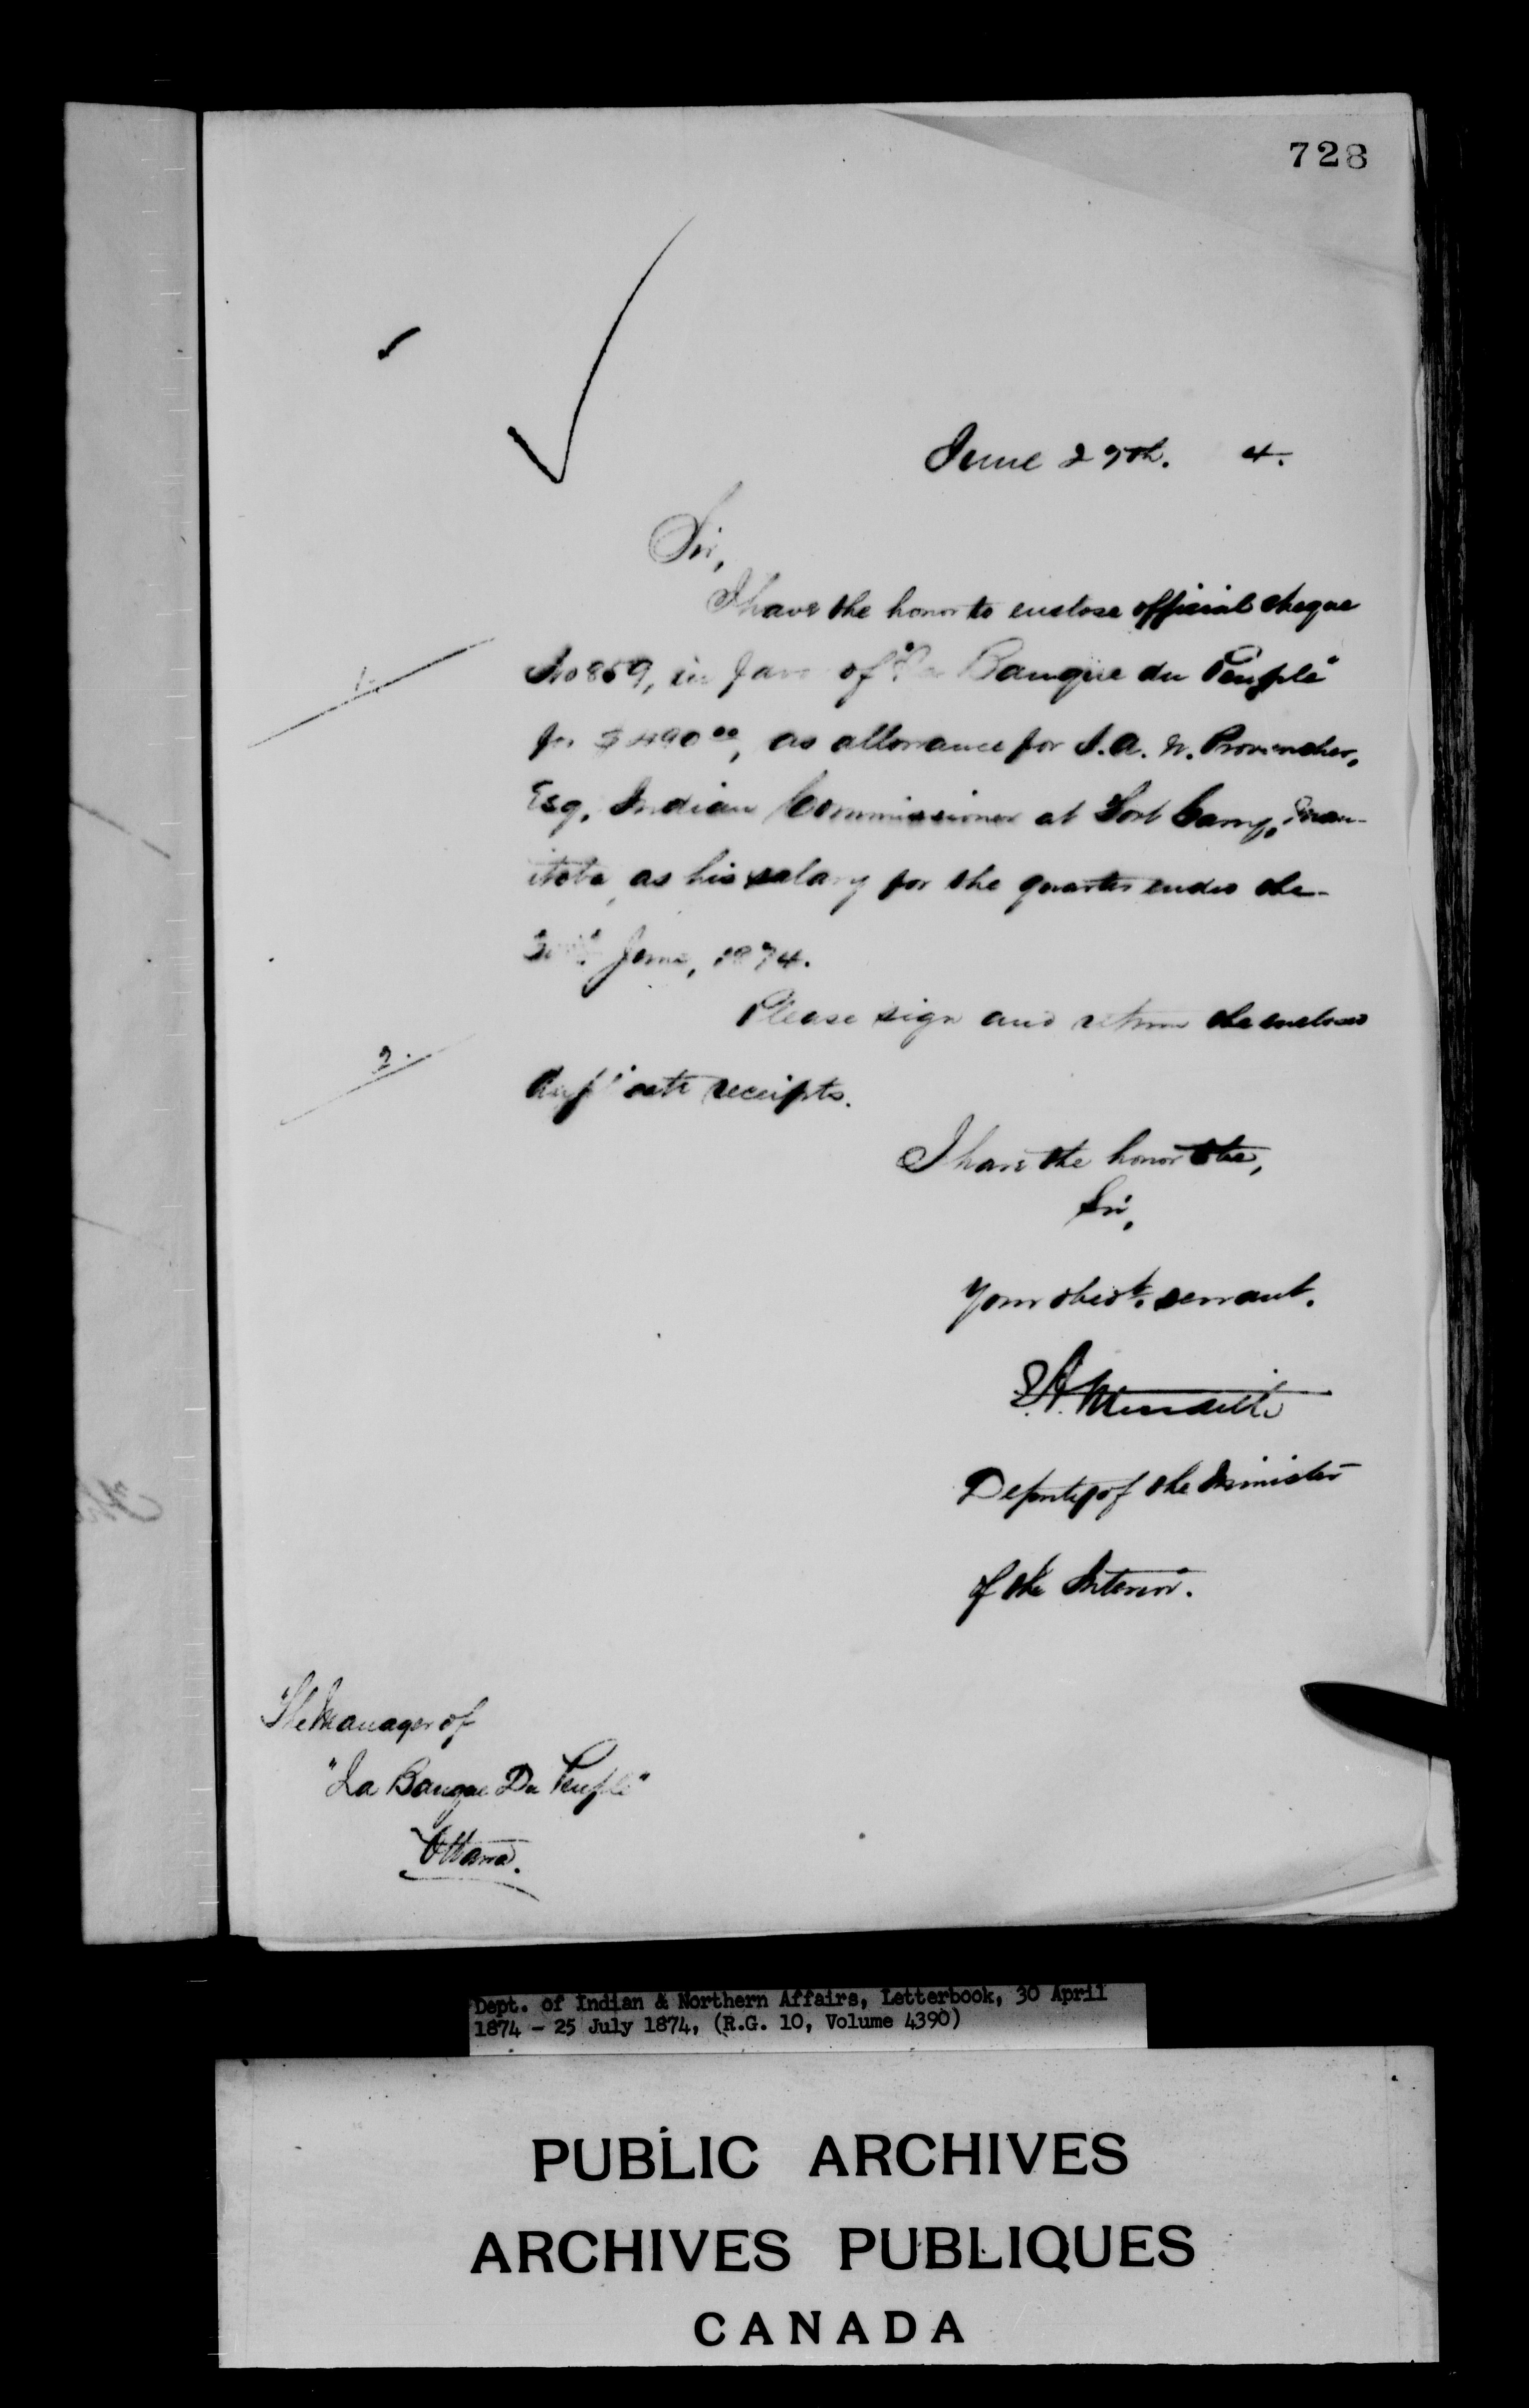 728
June 29th. 4.
Sir,
I have the honor to enclose official cheque
1.
No 859, in favor of "La Banque du Peuple"
for $490 00, as allowance for J. A. N. Provencher,
Esq, Indian Commissioner at Fort Garry, Man-
itoba, as his salary for the quarter ended the
June, 1874.
Please sign and return the enclosed
2.
duplicate receipts.
I have the honor to be,
Sir,
Your obedt. servant.
E. A. Meredith
Deputy of the Minister
of the Interior.
The Manager of
"La Banque Du Peuple"
Ottawa.
Dept. of Indian & Northern Affairs, Letterbook, 30 April
1874 - 25 July 1874, (R.G. 10, Volume 4390)
PUBLIC ARCHIVES
ARCHIVES PUBLIQUES
CANADA